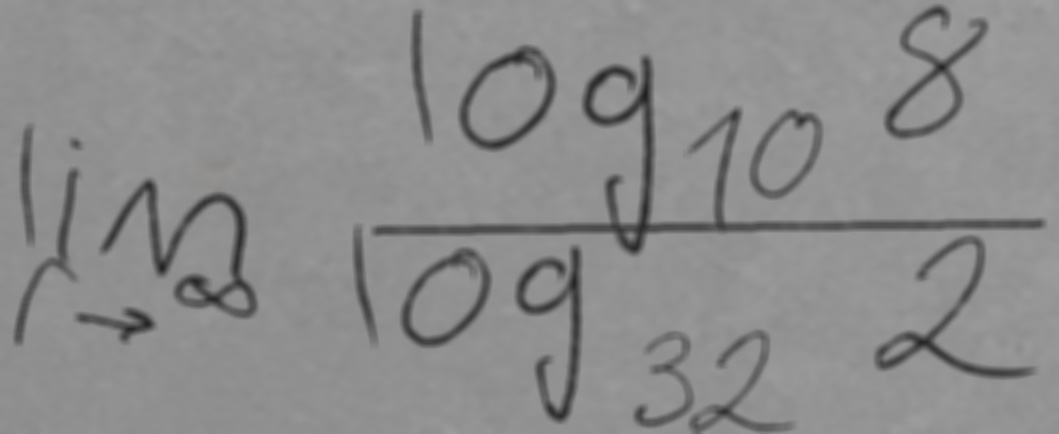 \lim_{r \to \infty} \frac{\log_{10} 8}{\log_{32} 2}